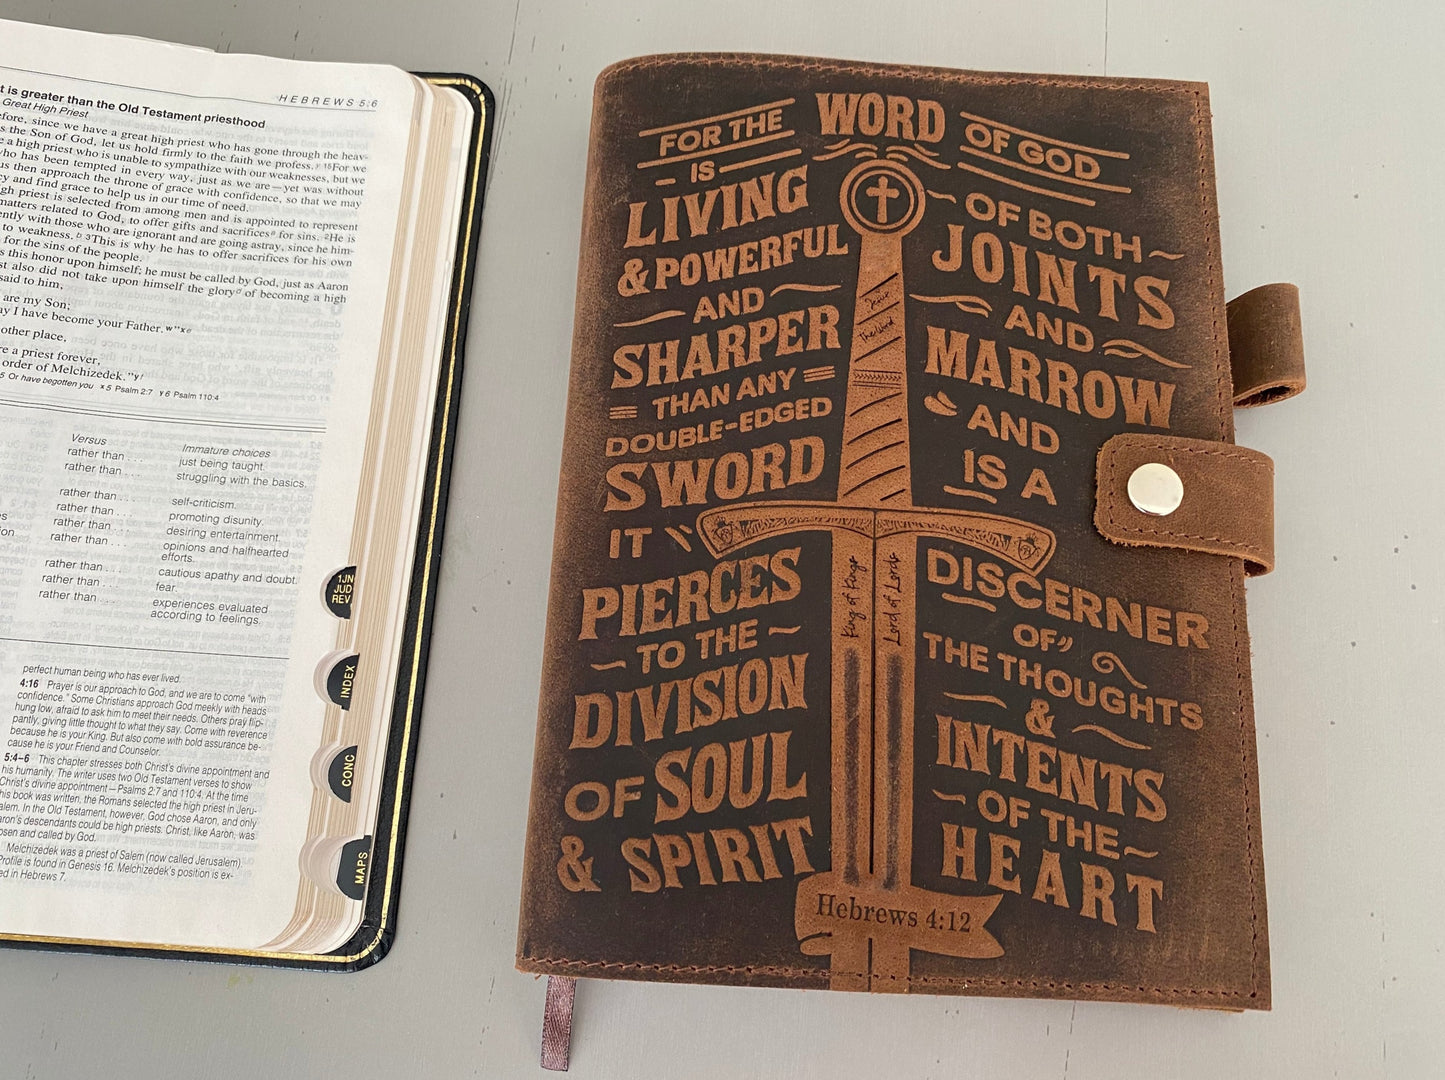 HEBREWS 5:6
t is greater than the Old Testament priesthood
Great High Priest
efore, since we have a great high priest who has gone through the heav-
s the Son of God, let us hold firmly to the faith we profess. ʸ ¹⁵For we
e a high priest who is unable to sympathize with our weaknesses, but we
who has been tempted in every way, just as we are—yet was without
us then approach the throne of grace with confidence, so that we may
cy and find grace to help us in our time of need.
gh priest is selected from among men and is appointed to represent
matters related to God, to offer gifts and sacrifices for sins. ²He is
ently with those who are ignorant and are going astray, since he him-
to weakness. ᵇ ³This is why he has to offer sacrifices for his own
for the sins of the people.
s this honor upon himself; he must be called by God, just as Aaron
st also did not take upon himself the glory of becoming a high
said to him,
are my Son;
ay I have become your Father. ʷ”ˣᵉ
other place,
re a priest forever,
order of Melchizedek.”ʸᶠ
5 Or have begotten you x 5 Psalm 2:7 y 6 Psalm 110:4
Versus Immature choices
rather than . . . just being taught.
rather than . . . struggling with the basics.
rather than . . . self-criticism.
rather than . . . promoting disunity.
rather than . . . desiring entertainment.
rather than . . . opinions and halfhearted
efforts.
rather than . . . cautious apathy and doubt.
rather than . . . fear.
rather than . . . experiences evaluated
according to feelings.
perfect human being who has ever lived.
4:16 Prayer is our approach to God, and we are to come "with
confidence." Some Christians approach God meekly with heads
hung low, afraid to ask him to meet their needs. Others pray flip-
pantly, giving little thought to what they say. Come with reverence
because he is your King. But also come with bold assurance be-
cause he is your Friend and Counselor.
5:4–6 This chapter stresses both Christ's divine appointment and
his humanity. The writer uses two Old Testament verses to show
Christ's divine appointment—Psalms 2:7 and 110:4. At the time
his book was written, the Romans selected the high priest in Jeru-
salem. In the Old Testament, however, God chose Aaron, and only
aron's descendants could be high priests. Christ, like Aaron, was
osen and called by God.
Melchizedek was a priest of Salem (now called Jerusalem).
Profile is found in Genesis 16. Melchizedek's position is ex-
ed in Hebrews 7.
1JN
JUD
REV
INDEX
CONC
MAPS
FOR THE WORD OF GOD
IS
LIVING
& POWERFUL
AND
SHARPER
THAN ANY
DOUBLE-EDGED
SWORD
IT
PIERCES
TO THE
DIVISION
OF SOUL
& SPIRIT
OF BOTH
JOINTS
AND
MARROW
AND
IS A
DISCERNER
OF
THE THOUGHTS
&
INTENTS
OF THE
HEART
Jesus
The Word
King of Kings
Lord of Lords
Hebrews 4:12